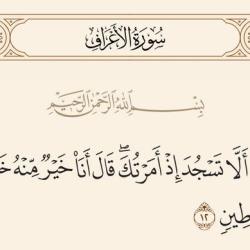 سُورَةُ الأَعۡرَافِ
بِسۡمِ ٱللَّهِ ٱلرَّحۡمَٰنِ ٱلرَّحِيمِ
أَلَّا تَسۡجُدَ إِذۡ أَمَرۡتُكَۖ قَالَ أَنَا۠ خَيۡرٞ مِّنۡهُ
١٢